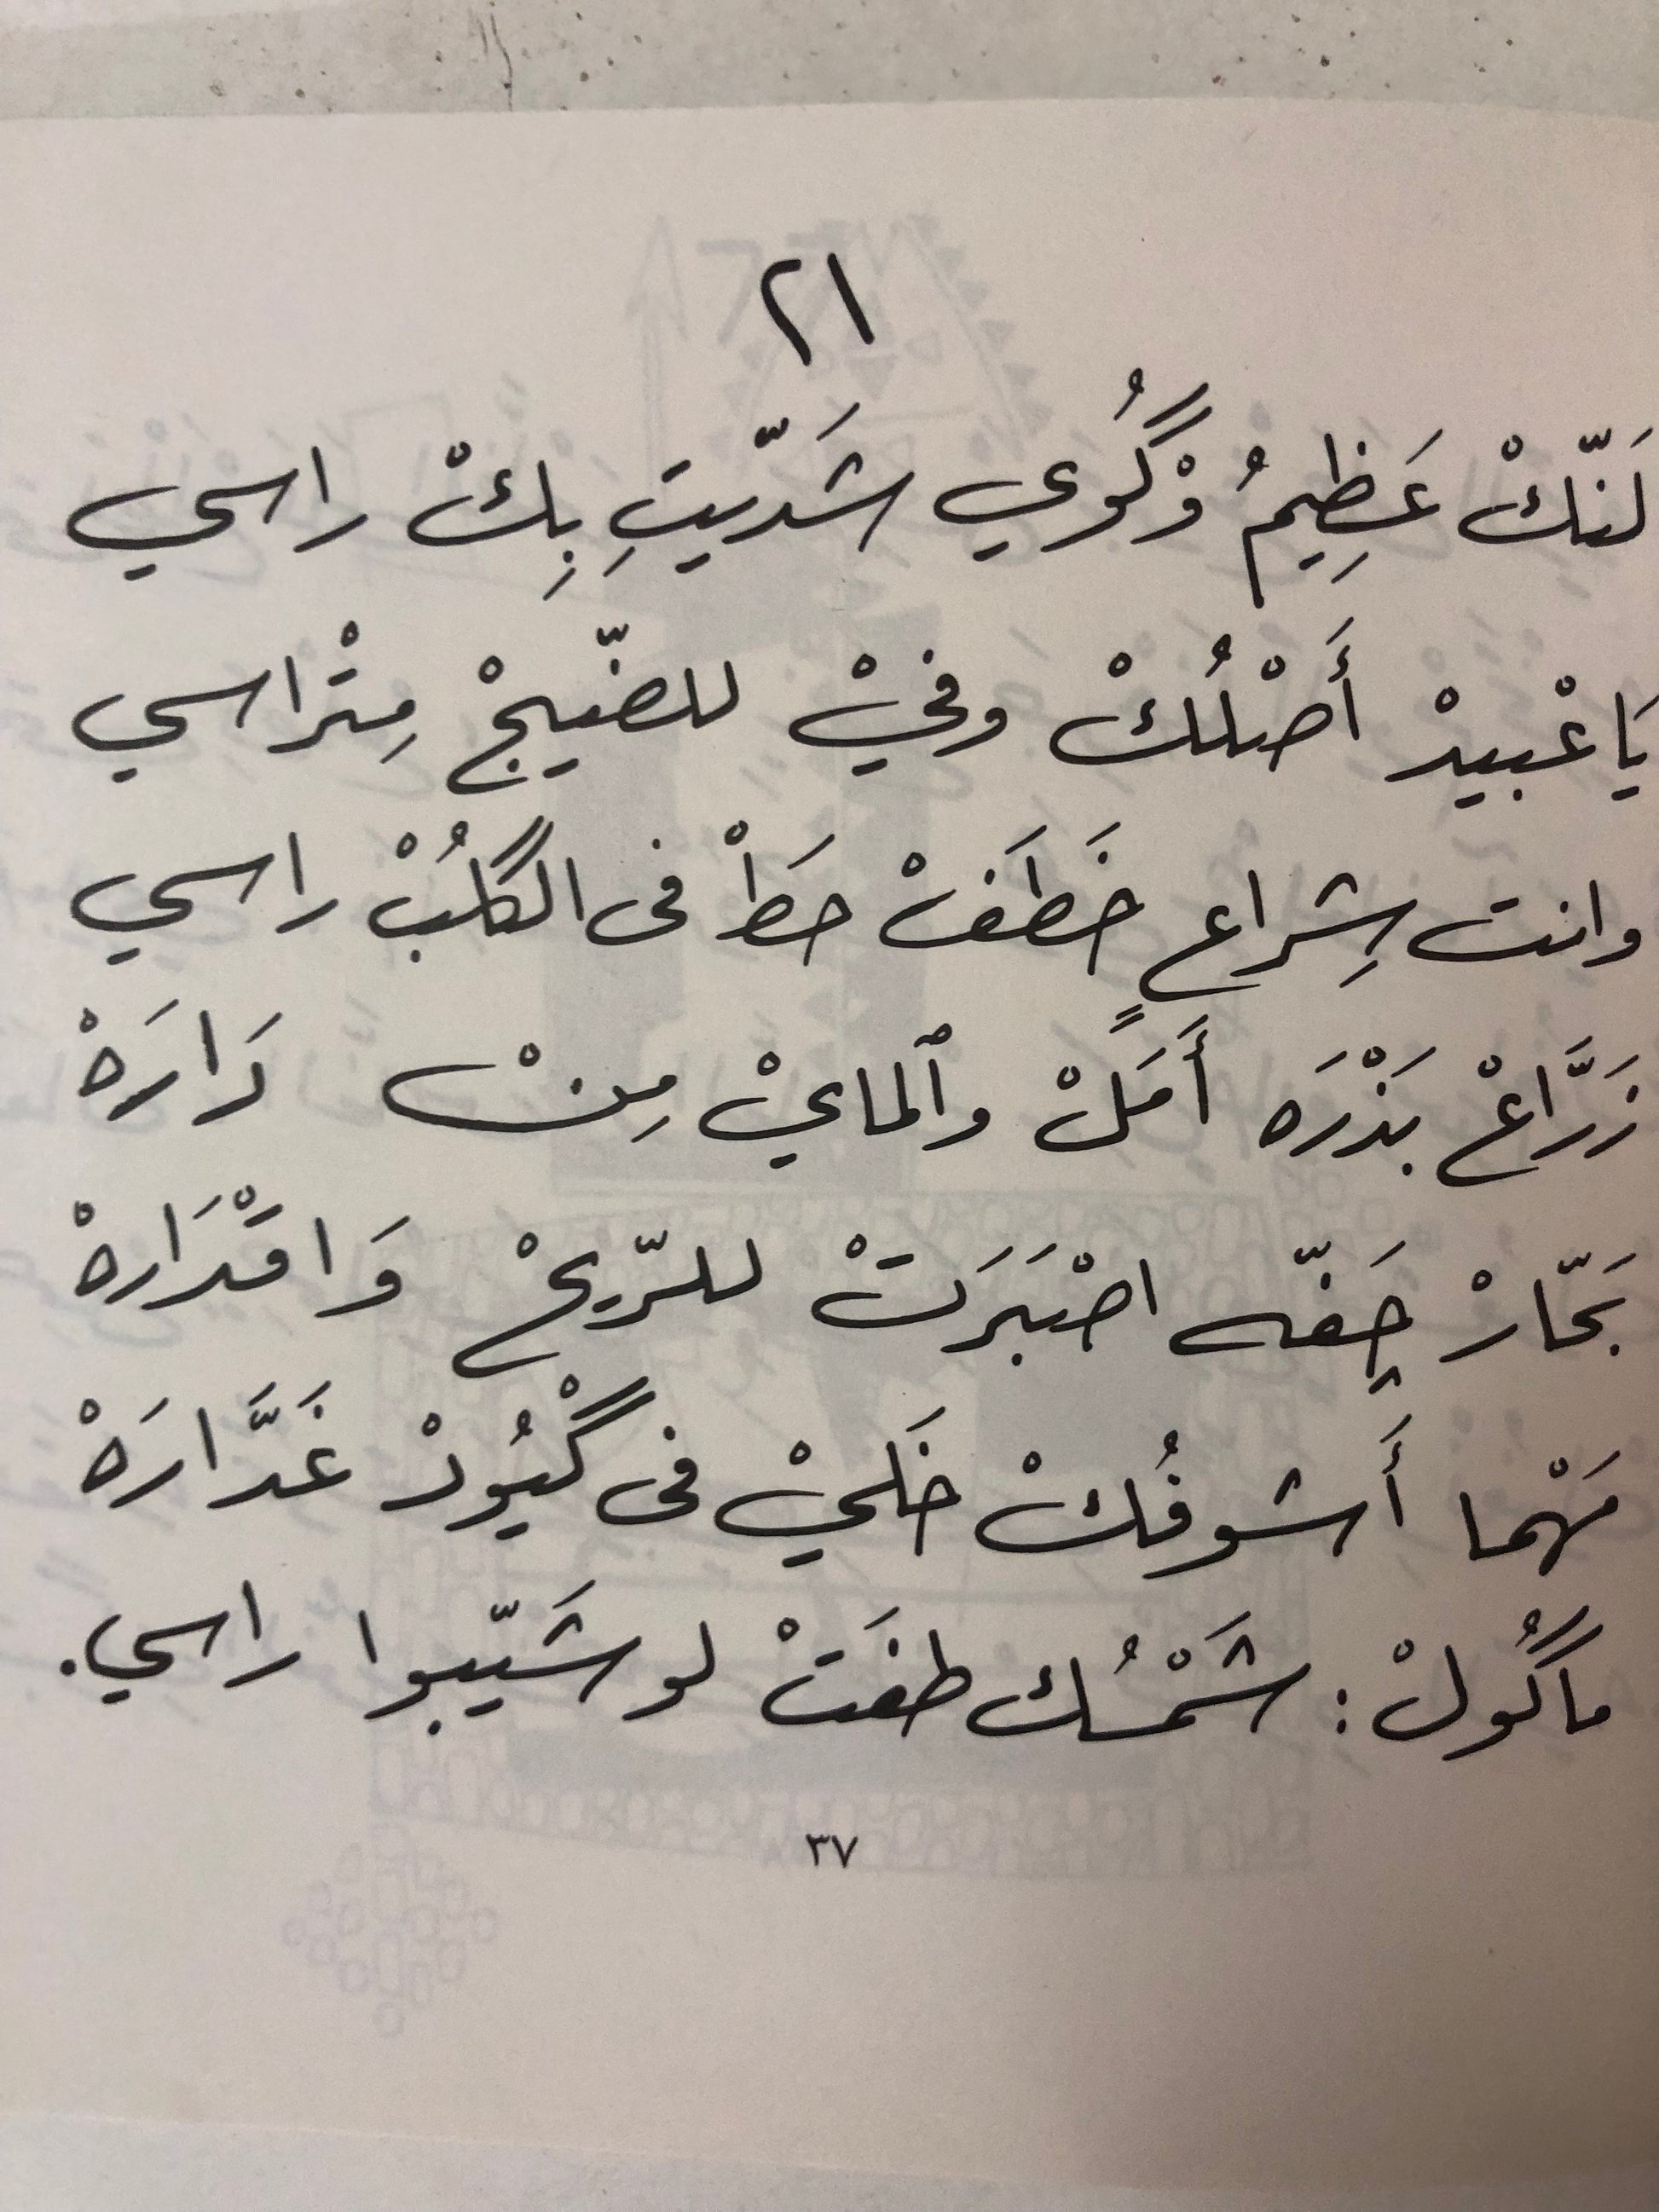 ٢١
لَنّكْ عَظِيمُ وْگُوي شَدّيتِ بِكْ راسي
يَا عْبيدْ أَصْلُكْ وفيْ للضّيجْ مِتْراسي
وانت شِراعٍ خَطَفْ حَطْ فى الگلُبْ راسي
زَرَّاعْ بَذْرَه أَمَلْ وٱلمايْ مِنْ دَارَهْ
بَحّارْ چَفّه اصْبَرَتْ للرّيحْ وَاقْدَارهْ
مَهْما أَشوفُكْ خَليْ فى گْيُودْ غَدَّارَهْ
ماگُولْ: شَمْسُك طفَتْ لو شَيّبوا راسي.
٣٧